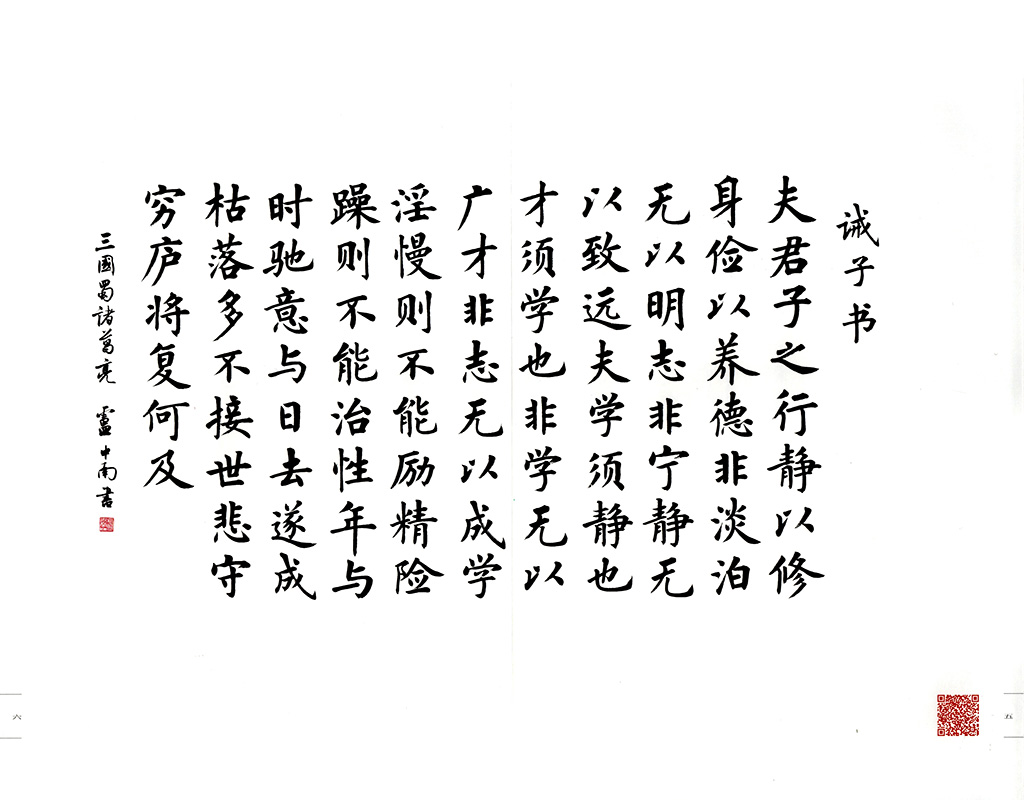 诫子书
夫君子之行静以修
身俭以养德非淡泊
无以明志非宁静无
以致远夫学须静也
才须学也非学无以
广才非志无以成学
淫慢则不能励精险
躁则不能治性年与
时驰意与日去遂成
枯落多不接世悲守
穷庐将复何及
三國蜀诸葛亮 盧中南书
五
六